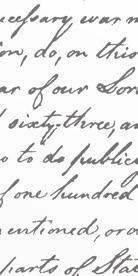 necessary war m
ion, do, on this
ar of our Lord
sixty-three, an
o to do publicl
f one hundred
mentioned, or
parts of St